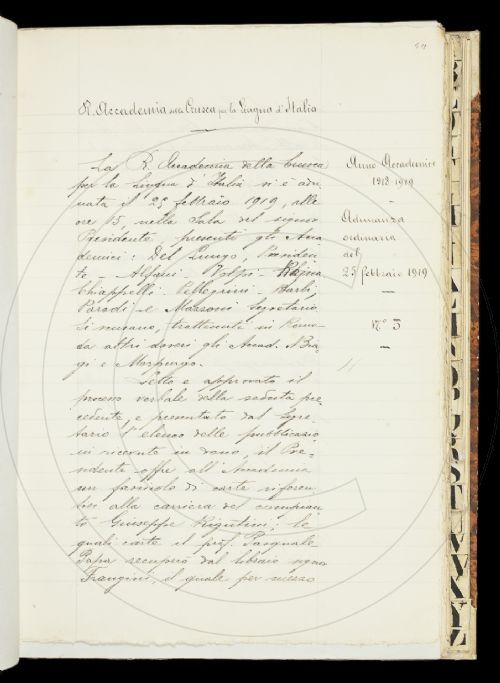 R. Accademia della Crusca per la Lingua d'Italia
La R. Accademia della Crusca
per la Lingua d'Italia si è adu-
nata il 25 febbraio 1919, alle
ore 15, nella Sala del signor
Presidente, presenti gli Acca-
demici: Del Lungo, Presiden-
te - Alfani - Volpi - Rajna
Chiappelli - Pellegrini - Barbi,
Parodi - e Mazzoni Segretario.
Si scusano, trattenuti in Roma
da altri doveri gli Accad.
e Morpurgo.
Letto e approvato il
processo verbale della seduta pre-
cedente, e presentato dal Segre-
tario l'elenco delle pubblicazio-
ni ricevute in dono, il Pre-
sidente offre all'Accademia
un fascicolo di carte riferen-
tisi alla carriera del compian-
to Giuseppe Rigutini; le
quali carte il prof. Pasquale
Papa recuperò dal libraio signor
Franzini, il quale per mezzo
Anno Accademico
1918-1919
Adunanza
ordinaria
del
25 febbraio 1919
N.º 3